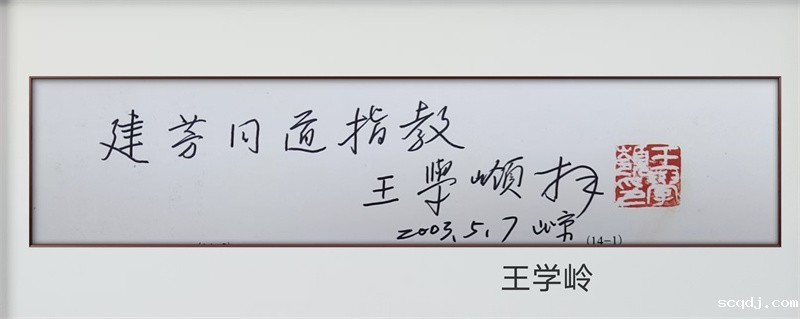 建芳同道指教
王學嶺拜
2003.5.7 北京
(14-1)
王學嶺印
王学岭
scqdj.com